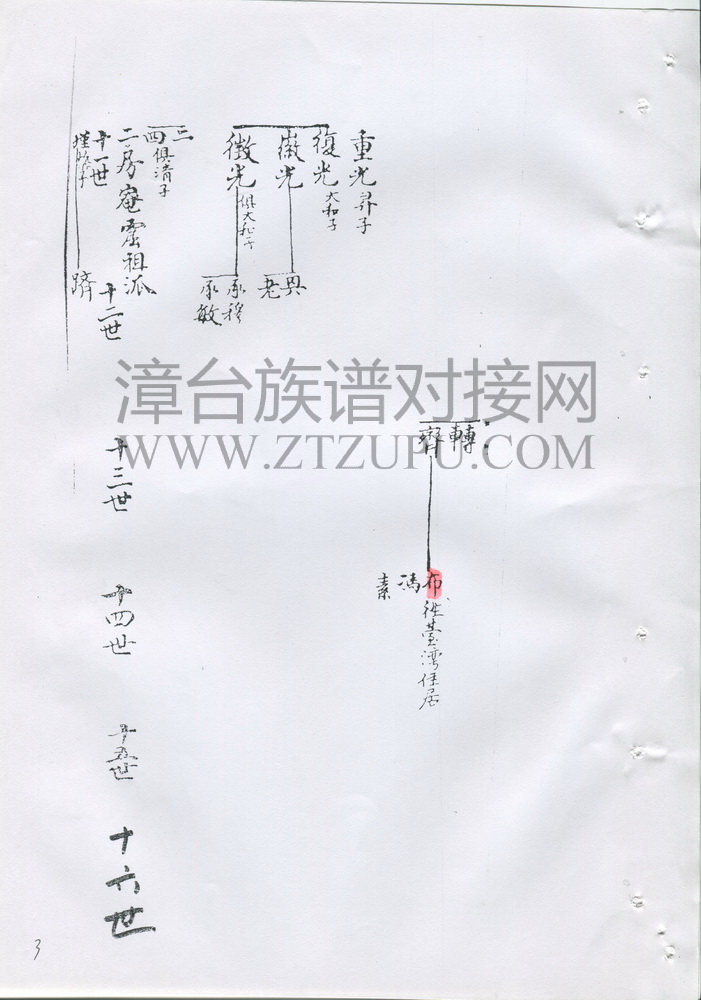 重光 昇子
復光 大和子
徽光
徵光 俱大和子
老 與
承穆
承敏
三
四 俱清子
二房菴雷祖派
十一世
十二世
躋
十三世
十四世
十五世
十六世
轉
齊
布 往臺灣住居
馮
素
漳台族谱对接网
WWW.ZTZUPU.COM
3